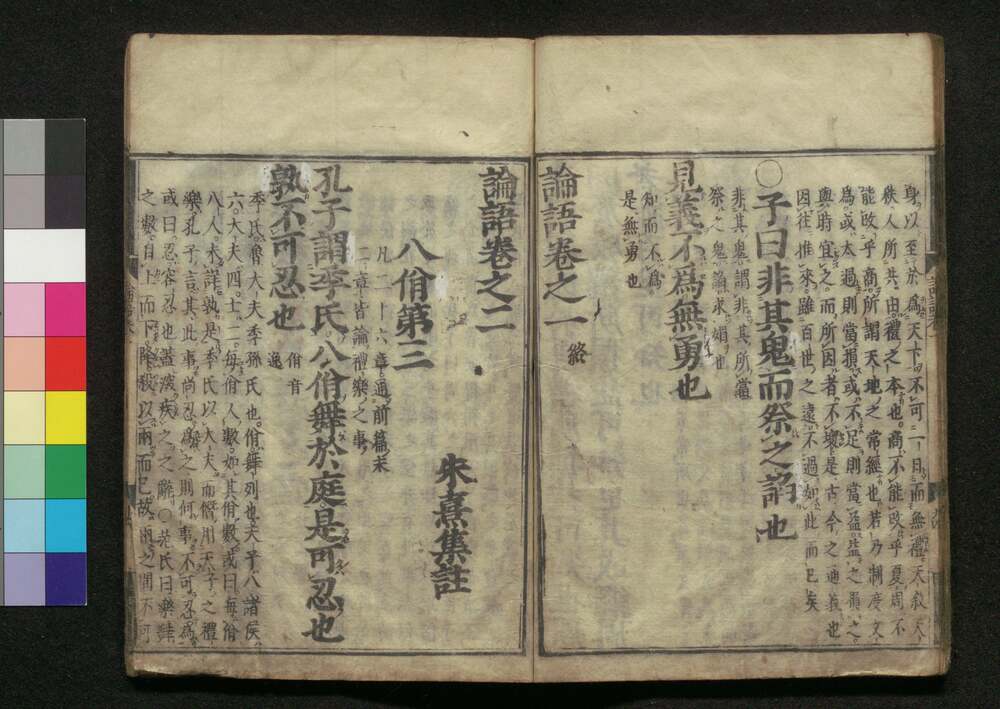 身以至於為天下不可一日而無禮天敘天
秩人所共由禮之本也商不能改乎夏周不
能改乎商所謂天地之常經也若乃制度文
為或太過則當損或不足則當益益之損之
與時宜之而所因者不壞是古今之通義也
因往推來雖百世之遠不過如此而已矣
○子曰非其鬼而祭之諂也
非其鬼謂非其所當
祭之鬼諂求媚也
見義不為無勇也
知而不為
是無勇也
論語卷之一 終
論語卷之二
朱熹集註
八佾第三
凡二十六章通前篇末
二章皆論禮樂之事
孔子謂季氏八佾舞於庭是可忍也
孰不可忍也
佾音
逸
季氏魯大夫季孫氏也佾舞列也天子八諸侯
六大夫四士二每佾人數如其佾數或曰每佾
八人未詳孰是季氏以大夫而僭用天子之禮
樂孔子言其此事尚忍為之則何事不可忍為
或曰忍容忍也蓋深疾之之辭○范氏曰樂舞
之數自上而下降殺以兩而已故兩之間不可